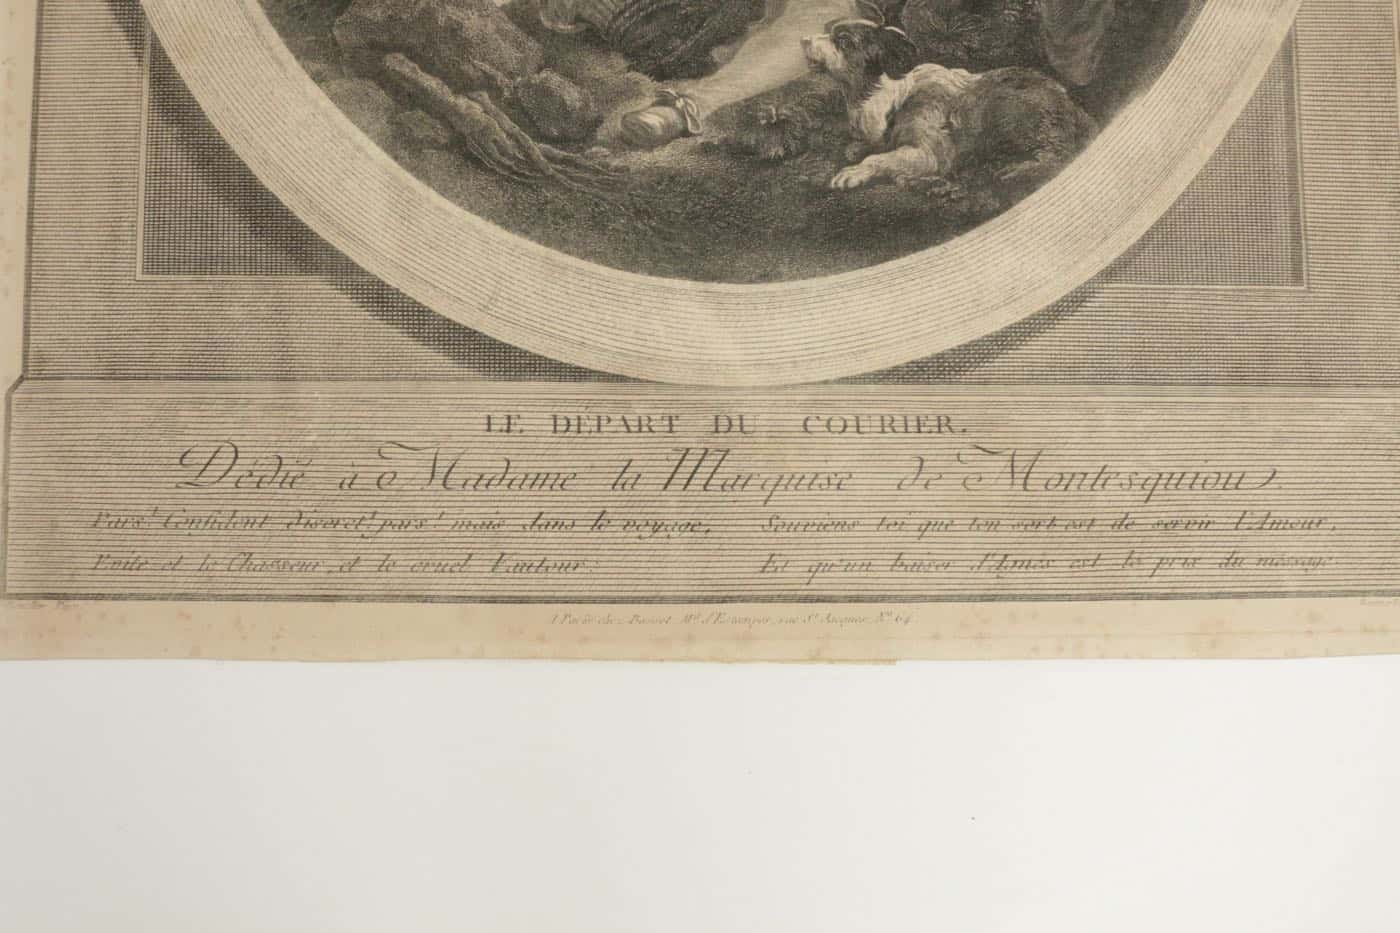 LE DÉPART DU COURIER.
Dédié à Madame la Marquise de Montesquiou.
Pars! Confident discret! pars! mais dans le voyage, Souviens toi que ton sort est de servir l'Amour,
Evite et le Chasseur, et le cruel Vautour: Et qu'un baiser d'Agnès est le prix du message.
A Paris chez Basset Md. d'Estampes, rue St. Jacques, No. 64.